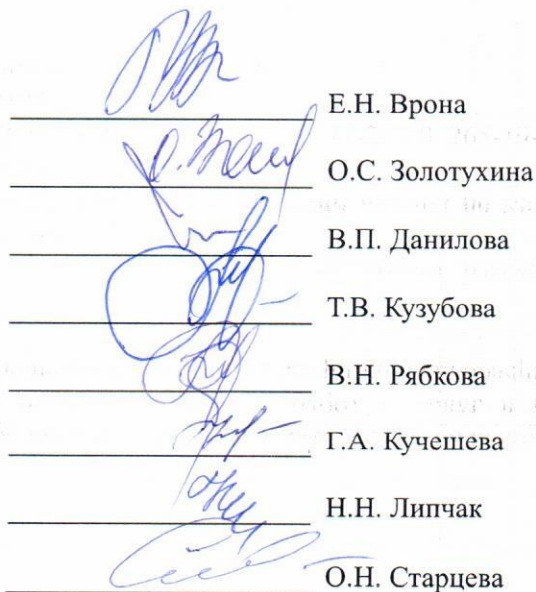 Е.Н. Врона
О.С. Золотухина
В.П. Данилова
Т.В. Кузубова
В.Н. Рябкова
Г.А. Кучешева
Н.Н. Липчак
О.Н. Старцева